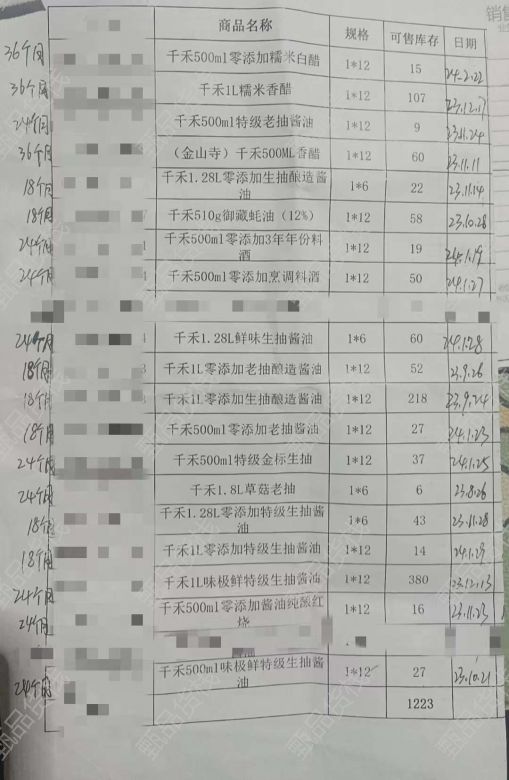 销售
商品名称 规格 可售库存 日期
36个月 千禾500ml零添加糯米白醋 1*12 15 24.2.22
36个月 千禾1L糯米香醋 1*12 107 23.12.17
24个月 千禾500ml特级老抽酱油 1*12 9 23.11.24
36个月 （金山寺）千禾500ML香醋 1*12 60 23.11.11
18个月 千禾1.28L零添加生抽酿造酱油 1*6 22 23.11.14
18个月 千禾510g御藏蚝油（12%） 1*12 58 23.10.28
24个月 千禾500ml零添加3年年份料酒 1*12 19 24.1.19
24个月 千禾500ml零添加烹调料酒 1*12 50 24.1.27
24个月 千禾1.28L鲜味生抽酱油 1*6 60 24.1.28
18个月 千禾1L零添加老抽酿造酱油 1*12 52 23.9.26
18个月 千禾1L零添加生抽酿造酱油 1*12 218 23.9.24
18个月 千禾500ml零添加老抽酱油 1*12 27 24.1.23
24个月 千禾500ml特级金标生抽 1*12 37 24.1.25
24个月 千禾1.8L草菇老抽 1*6 6 23.8.26
18个月 千禾1.28L零添加特级生抽酱油 1*6 43 23.11.28
18个月 千禾1L零添加特级生抽酱油 1*12 14 24.1.29
24个月 千禾1L味极鲜特级生抽酱油 1*12 380 23.12.13
24个月 千禾500ml零添加酱油纯酿红烧 1*12 16 23.11.23
24个月 千禾500ml味极鲜特级生抽酱油 1*12 27 23.10.21
1223
甄品货栈